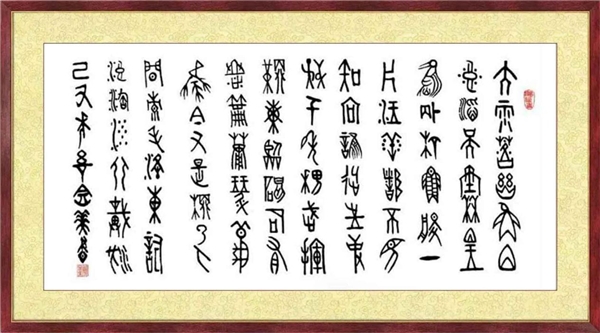 大雨落幽燕白
浪滔天秦皇
島外打魚船一
片汪洋都不見
知向誰邊往事
越千年魏武揮
鞭東臨碣石有
遺篇蕭瑟秋
風今又是換了人
間 毛澤東詞
浪淘沙北戴河